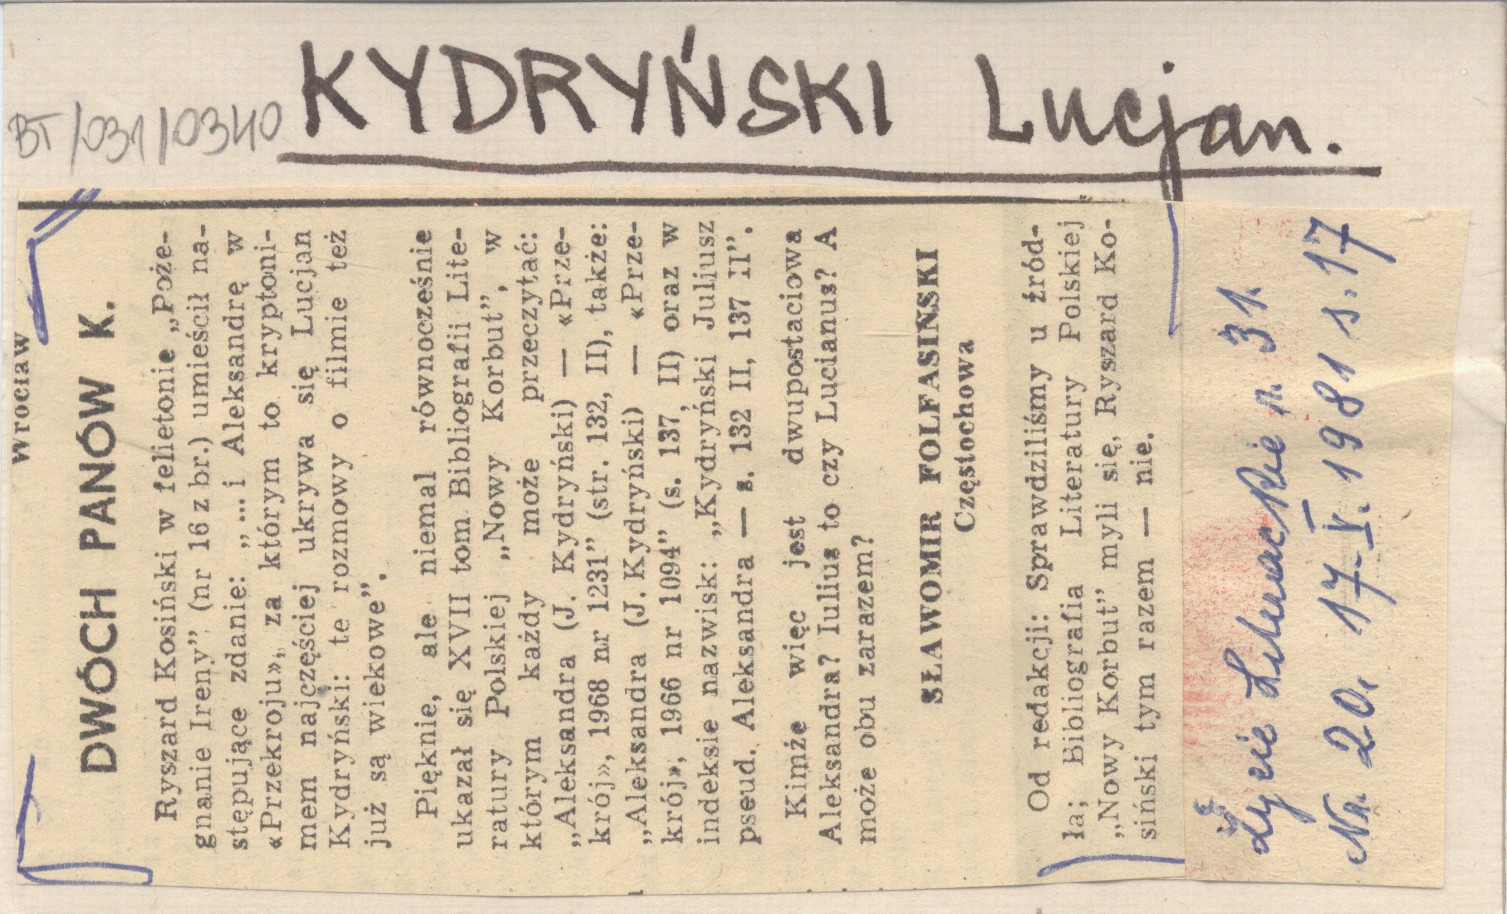 BT/031/0340
KYDRYŃSKI Lucjan.
Wrocław
DWÓCH PANÓW K.
Ryszard Kosiński w felietonie „Poże-
gnanie Ireny” (nr 16 z br.) umieścił na-
stępujące zdanie: „... i Aleksandrę w
«Przekroju», za którym to kryptoni-
mem najczęściej ukrywa się Lucjan
Kydryński: te rozmowy o filmie też
już są wiekowe”.
Pięknie, ale niemal równocześnie
ukazał się XVII tom Bibliografii Lite-
ratury Polskiej „Nowy Korbut”, w
którym każdy może przeczytać:
„Aleksandra (J. Kydryński) — «Prze-
krój», 1968 nr 1231” (str. 132, II), także:
„Aleksandra (J. Kydryński) — «Prze-
krój», 1966 nr 1094” (s. 137, II) oraz w
indeksie nazwisk: „Kydryński Juliusz
pseud. Aleksandra — s. 132 II, 137 II”.
Kimże więc jest dwupostaciowa
Aleksandra? Iulius to czy Lucianus? A
może obu zarazem?
SŁAWOMIR FOLFASIŃSKI
Częstochowa
Od redakcji: Sprawdziliśmy u źród-
ła; Bibliografia Literatury Polskiej
„Nowy Korbut” myli się, Ryszard Ko-
siński tym razem — nie.
Życie Literackie r. 31.
Nr. 20. 17.V.1981 s. 17